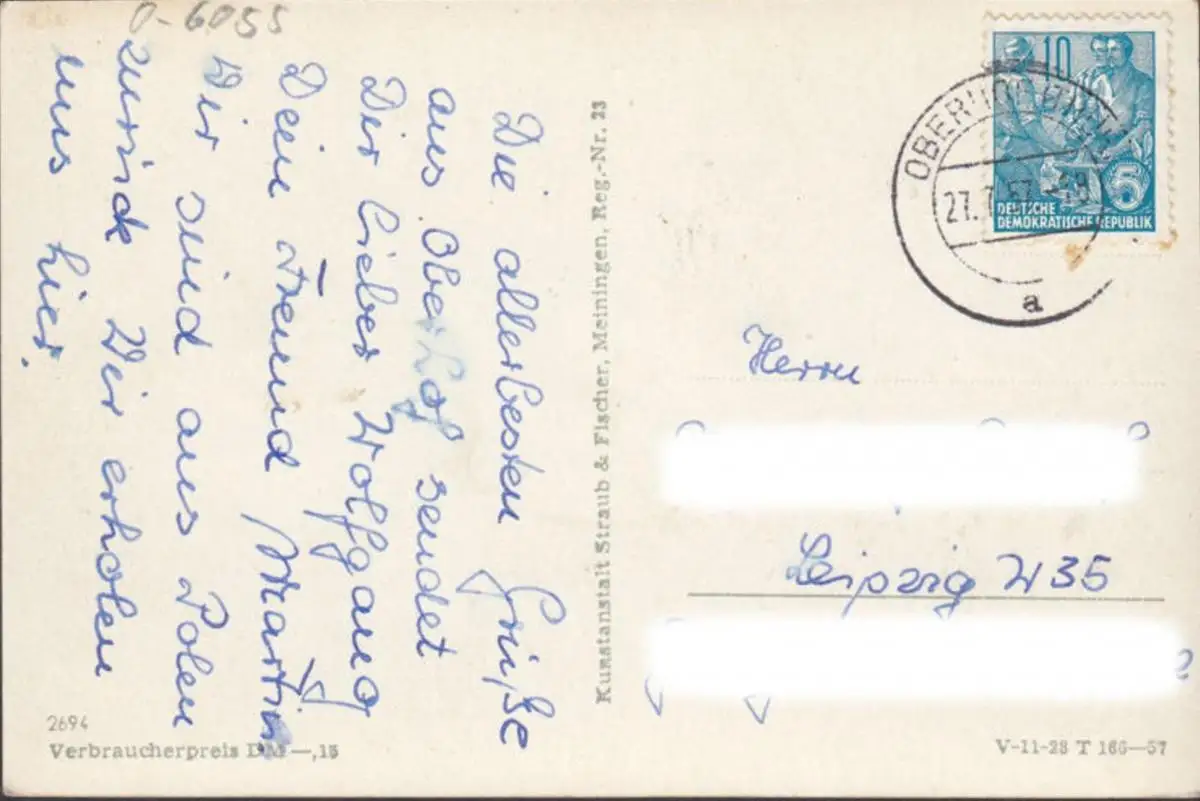 O-6055
Die allerbesten Grüße
aus Oberhof sendet
Dir lieber Wolfgang
Dein Freund Martin
Wir sind aus Polen
zurück Wir erholen
uns hier.
2694
Verbraucherpreis DM —,15
Kunstanstalt Straub & Fischer, Meiningen, Reg.-Nr. 23
10
5
DEUTSCHE
DEMOKRATISCHE REPUBLIK
27. 7. 57
a
Herrn
Leipzig W 35
V-11-28 T 166—57